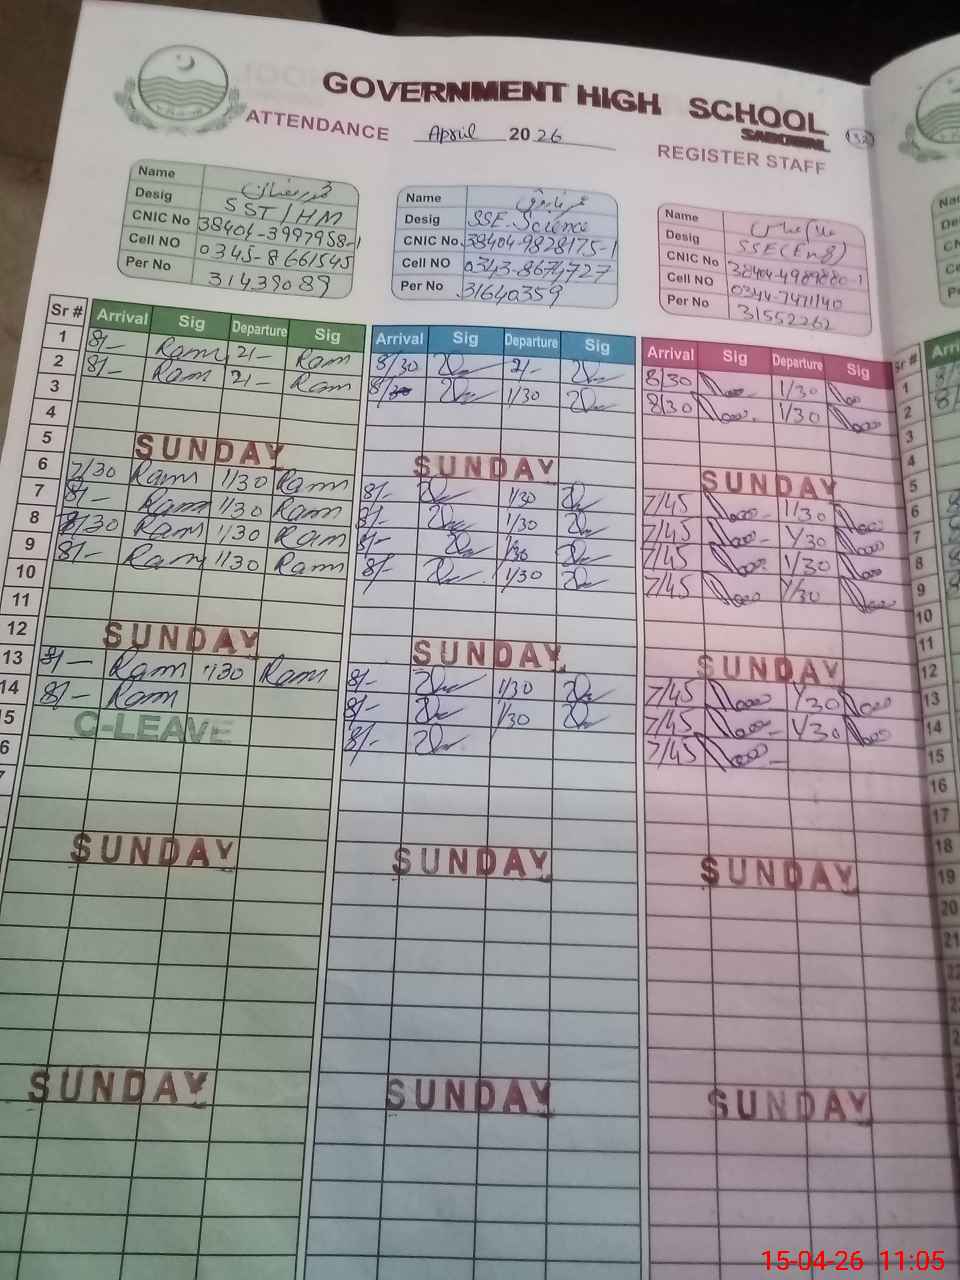 GOVERNMENT HIGH SCHOOL
SABOWAL
ATTENDANCE April 2026
REGISTER STAFF
32
Name محمد رمضان
Desig SST/HM
CNIC No 38404-3997958-1
Cell NO 0345-8661545
Per No 31439089
Name
Desig SSE-Science
CNIC No. 38404-9828175-1
Cell NO 0343-8674727
Per No 31640359
Name
Desig SSE(Eng)
CNIC No 38404-4989880-1
Cell NO 0344-7471140
Per No 31552262
Sr # Arrival Sig Departure Sig Arrival Sig Departure Sig Arrival Sig Departure Sig Sr #
1 8/- Ram 2/- Ram 8/30 2/- 8/30 1/30 1
2 8/- Ram 2/- Ram 8/30 1/30 8/30 1/30 2
3 3
4 4
5 SUNDAY SUNDAY SUNDAY 5
6 7/30 Ram 1/30 Ram 8/- 1/30 7/45 1/30 6
7 8/- Ram 1/30 Ram 8/- 1/30 7/45 1/30 7
8 8/30 Ram 1/30 Ram 8/- 1/30 7/45 1/30 8
9 8/- Ram 1/30 Ram 8/- 1/30 7/45 1/30 9
10 10
11 11
12 SUNDAY SUNDAY SUNDAY 12
13 8/- Ram 1/30 Ram 8/- 1/30 7/45 1/30 13
14 8/- Ram 8/- 1/30 7/45 1/30 14
15 C-LEAVE 8/- 7/45 15
16 16
17
18
SUNDAY SUNDAY SUNDAY 19
20
21
SUNDAY SUNDAY SUNDAY
15-04-26 11:05